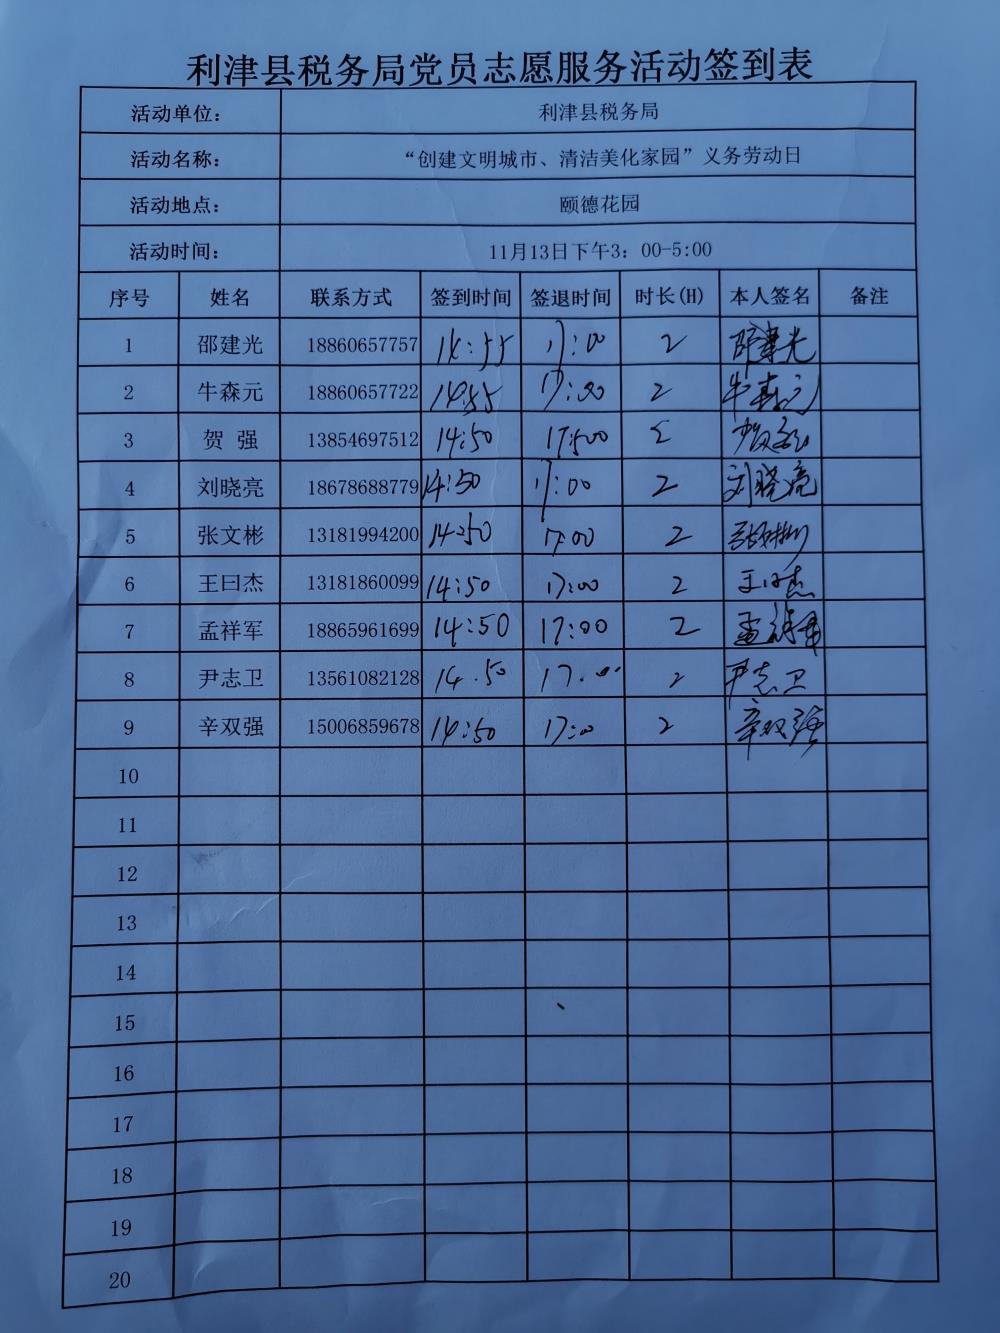 利津县税务局党员志愿服务活动签到表
活动单位： 利津县税务局
活动名称： “创建文明城市、清洁美化家园”义务劳动日
活动地点： 颐德花园
活动时间： 11月13日下午3：00-5:00
序号 姓名 联系方式 签到时间 签退时间 时长(H) 本人签名 备注
1 邵建光 18860657757 14:55 17:00 2 邵建光
2 牛森元 18860657722 14:55 17:00 2 牛森元
3 贺 强 13854697512 14:50 2 贺强
4 刘晓亮 18678688779 14:50 17:00 2 刘晓亮
5 张文彬 13181994200 14:50 17:00 2 张文彬
6 王曰杰 13181860099 14:50 17:00 2 王曰杰
7 孟祥军 18865961699 14:50 17:00 2 孟祥军
8 尹志卫 13561082128 14.50 17.00 2 尹志卫
9 辛双强 15006859678 14:50 17:00 2 辛双强
10
11
12
13
14
15
16
17
18
19
20